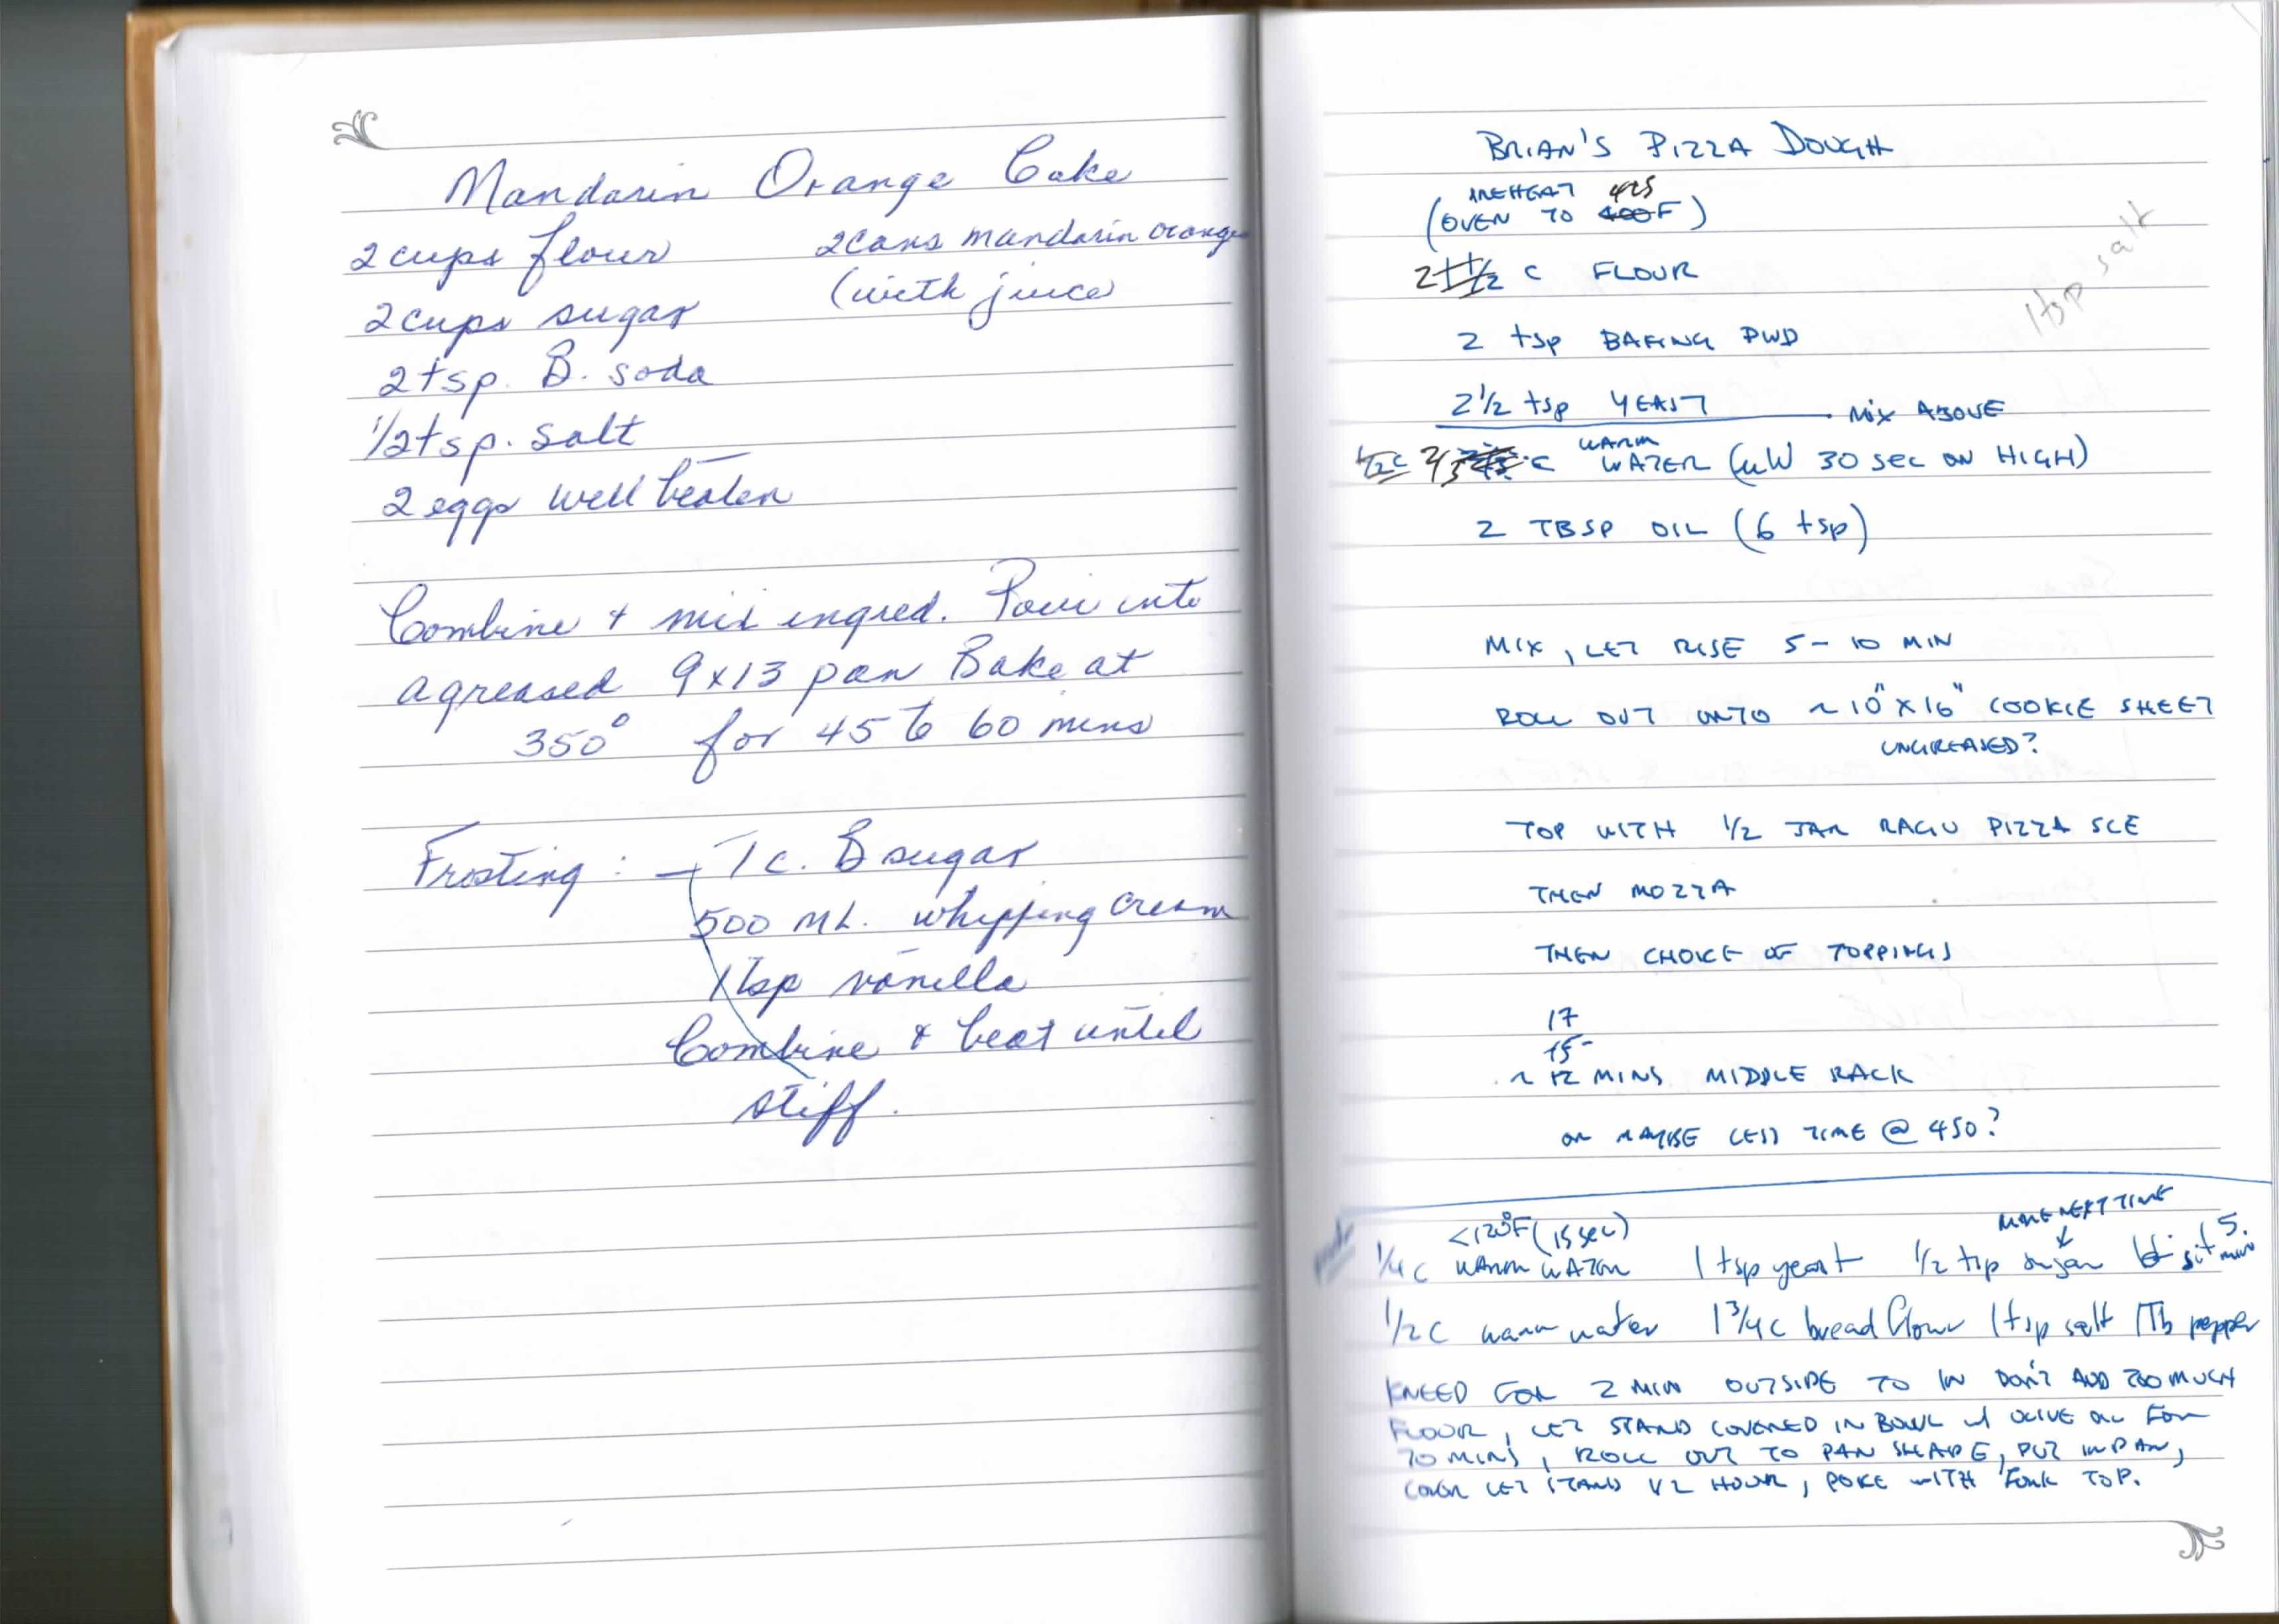 Mandarin Orange Cake
2 cups flour 2 cans mandarin orange
2 cups sugar (with juice
2 tsp. B. soda
1/2 tsp. salt
2 eggs well beaten
Combine + mix ingred. Pour into
a greased 9x13 pan Bake at
350° for 45 to 60 mins
Frosting: – 1 c. B sugar
500 ML. whipping cream
1 tsp vanilla
Combine & beat until
stiff.
BRIAN'S PIZZA DOUGH
PREHEAT 425
(OVEN TO 400F)
2 1 1/2 C FLOUR
1 tsp salt
2 tsp BAKING PWD
2 1/2 tsp YEAST MIX ABOVE
1/2 C 2/3 C WARM WATER (uW 30 SEC ON HIGH)
2 TBSP OIL (6 tsp)
MIX, LET RISE 5 - 10 MIN
ROLL OUT ONTO ~ 10" X 16" COOKIE SHEET
UNGREASED?
TOP WITH 1/2 JAR RAGU PIZZA SCE
THEN MOZZA
THEN CHOICE OF TOPPINGS
17
15-
~ 12 MINS MIDDLE RACK
OR MAYBE LESS TIME @ 450?
<120°F (15 sec) MORE NEXT TIME
1/4 C WARM WATER 1 tsp yeast 1/2 tsp sugar let sit 5. min
1/2 C warm water 1 3/4 c bread flour 1 tsp salt 1 Tb pepper
KNEED FOR 2 MIN OUTSIDE TO IN DON'T ADD TOO MUCH
FLOUR, LET STAND COVERED IN BOWL w/ OLIVE OIL FOR
70 MINS, ROLL OUT TO PAN SHAPE, PUT IN PAN,
COVER LET STAND 1/2 HOUR, POKE WITH FORK TOP.